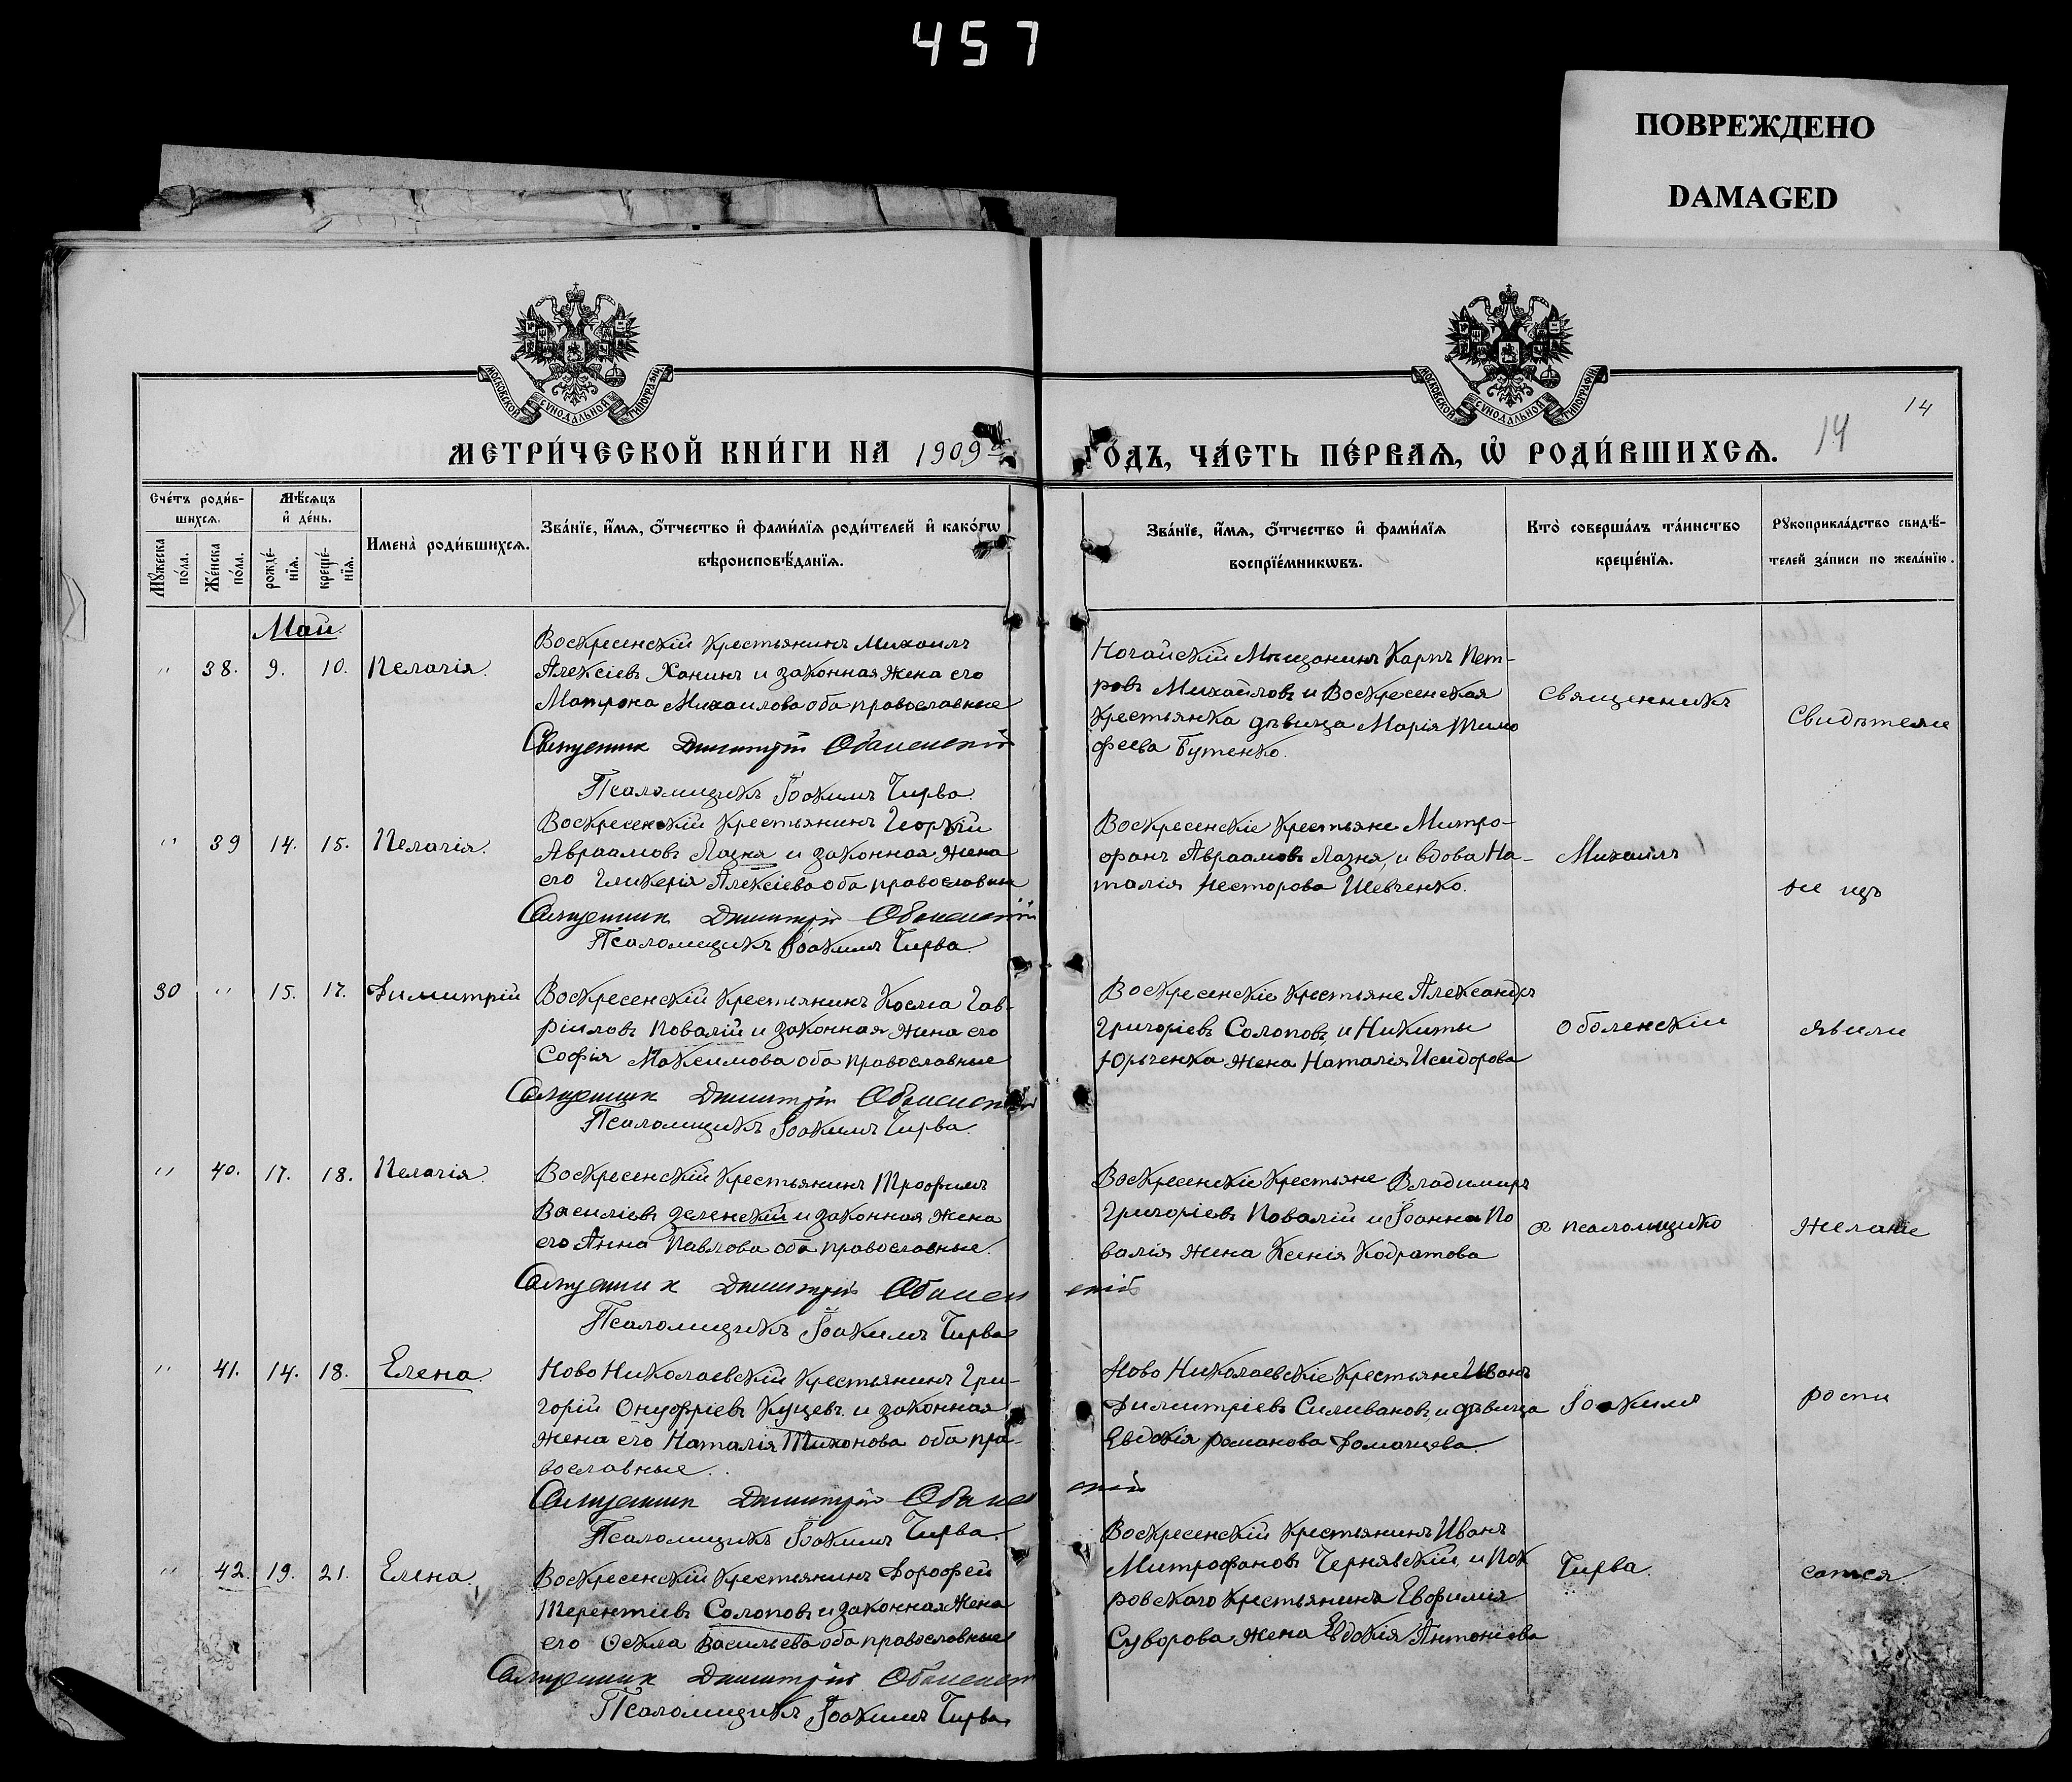 457
ПОВРЕЖДЕНО
DAMAGED
МОСКОВСКОЙ СѴНОДАЛЬНОЙ ТИПОГРАФІИ
МОСКОВСКОЙ СѴНОДАЛЬНОЙ ТИПОГРАФІИ
14
14
МЕТРИ́ЧЕСКОЙ КНИ́ГИ НА 1909й
ГО́ДЪ, ЧА́СТЬ ПЕ́РВАѦ, Ѡ҆ РОДИ́ВШИХСѦ.
Сче́тъ роди́в-
шихсѧ.
Мꙋ́жеска по́ла.
Же́нска по́ла.
Мѣ́сѧцъ
и҆ де́нь.
рожде́-
нїѧ.
креще́-
нїѧ.
Имена̀ роди́вшихсѧ.
Зва́нїе, и҆́мѧ, ѻ҆́тчество и҆ фами́лїѧ роди́телей и҆ како́гѡ
вѣроисповѣ́данїѧ.
Зва́нїе, и҆́мѧ, ѻ҆́тчество и҆ фами́лїѧ
воспрїе́мникѡвъ.
Кто̀ соверша́лъ та́инство
креще́нїѧ.
Рꙋкоприкла́дство свидѣ́-
телей за́писи по жела́нїю.
Май
" 38. 9. 10. Пелагія.
Воскресенскій крестьянинъ Михаилъ
Алексіевъ Ханинъ и законная жена его
Матрона Михаилова оба православные
Священник Димитрій Оболенскій
Псаломщикъ Іоакимъ Чирва.
Ногайскій мѣщанинъ Карпъ Пет-
ровъ Михайловъ и Воскресенская
крестьянка дѣвица Марія Тимо
феева Бутенко.
Священникъ
Свидѣтели
" 39 14. 15. Пелагія.
Воскресенскій крестьянинъ Георгій
Авраамовъ Лазня и законная жена
его Гликерія Алексіева оба православны
Священник Димитрій Оболенскій
Псаломщикъ Іоакимъ Чирва.
Воскресенскіе крестьяне Митро-
фанъ Авраамовъ Лазня, и вдова На-
талія Несторова Шевченко.
Михаилъ
не изъ
30 " 15. 17. Димитрій
Воскресенскій крестьянинъ Косма Гав-
ріиловъ Повалій и законная жена его
Софія Максимова оба православные
Священник Димитрій Оболенскій
Псаломщикъ Іоакимъ Чирва.
Воскресенскіе крестьяне Александръ
Григоріевъ Солоповъ, и Никиты
Юрченка жена Наталія Исидорова
Оболенскій
явили
" 40. 17. 18. Пелагія.
Воскресенскій крестьянинъ Трофимъ
Василіевъ Зеленскій и законная жена
его Анна Павлова оба православные.
Священник Димитрій Оболенскій
Псаломщикъ Іоакимъ Чирва
Воскресенскіе крестьяне Владимиръ
Григоріевъ Повалій и Іоанна По
валія жена Ксенія Кодратова
с псаломщико
желаніе
" 41. 14. 18. Елена.
Ново Николаевскій крестьянинъ Гри-
горій Онуфріевъ Куцевъ и законная
жена его Наталія Тихонова оба пра-
вославные.
Священник Димитрій Оболенскій
Псаломщикъ Іоакимъ Чирва.
Ново Николаевскіе крестьяне Иванъ
Димитріевъ Силивановъ, и дѣвица
Евдокія Романова Домащева.
Іоакимъ
рости
" 42. 19. 21. Елена.
Воскресенскій крестьянинъ Дорофей
Терентіевъ Солоповъ и законная жена
его Фекла Васильева оба православные
Священник Димитрій Оболенскій
Псаломщикъ Іоакимъ Чирва
Воскресенскій крестьянинъ Иванъ
Митрофановъ Чернявскій, и Пок
ровского крестьянина Евфимія
Суворова жена Евдокія Антоніова
Чирва.
сатся.